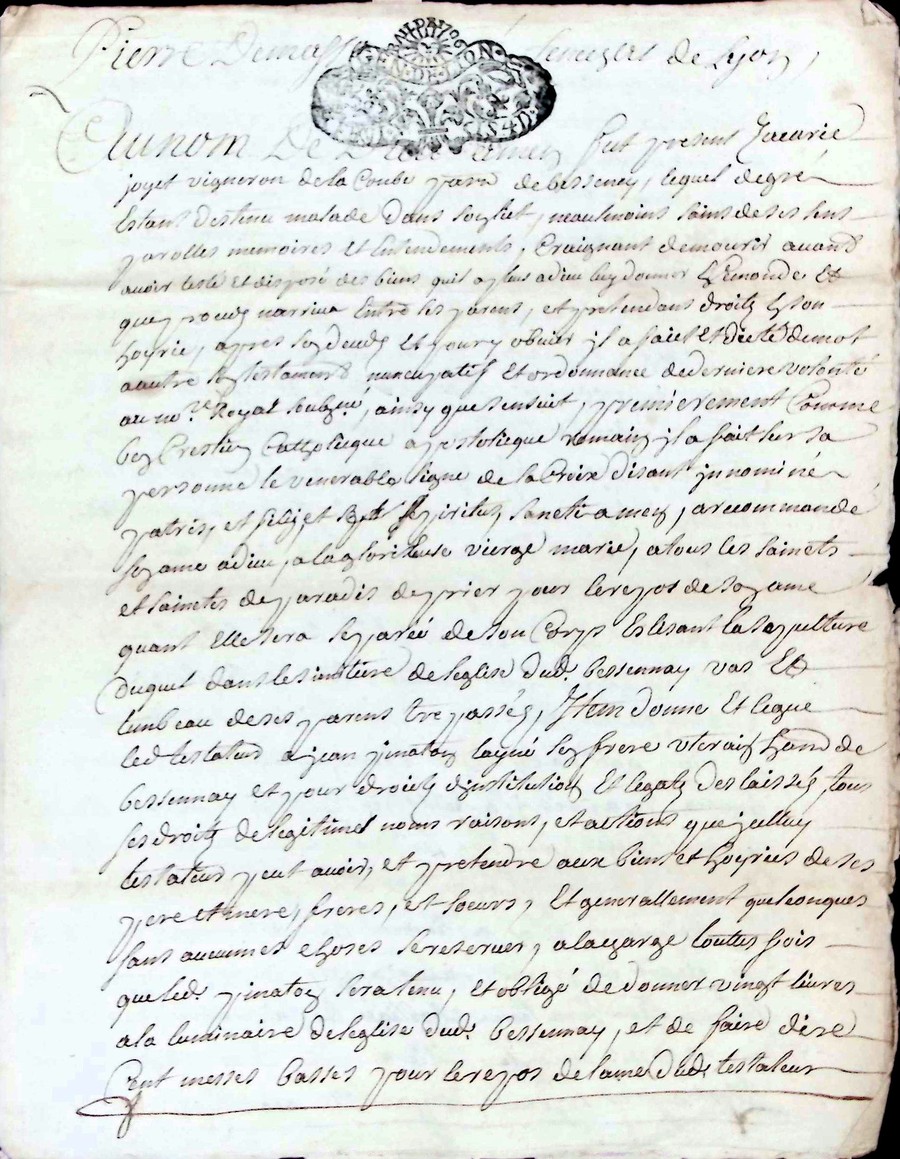 Pierre Dumas senechal de Lyon,
GEN·DE·LYON
Au nom De Dieu Amen fut present Zacarie
joyet vigneron de la Combe parr. de bessenay, lequel de gré
Estant destenu malade dans son liet, neaulmoins sains de ses sens
parolles memoires et Entendements, Craignant de mourir avant
avoir testé Et disposé des biens quil a plus a dieu luy donner Et
que proces narriva Entre ses parens, et pretendans droits En son
hoyrie, apres son deces Et pour y obvier jl a faict Et dicté de mot
a autre son testament nuncupatif Et ordonnance de derniere volonté
au no.re Royal soubzné, ainsy que sensuit, premierement Comme
bon Crestien Catholicque apostolicque romain jl a fait sur sa
personne le venerable signe de la Croix disant jn nominé
patris, et filij et spiritus sancti amen, a recommandé
son ame a dieu, a la glorieuse vierge marie, a tous les saincts
et sainctes de paradis de prier pour le repos de son ame
quant Elle sera separéé de son Corps Eslisant la sepulture
duquel dans le simitiere de leglise dud. bessennay vas Et
tumbeau de ses parens trepassés, Item donne Et legue
led. testateur a jean pinaton layné son frere uterain de
bessennay et pour droict dinstitution Et legatz delaissés tous
ses droitz de legitimes noms raisons, et actions que jcelluy
testateur peut avoir, et pretendre aux biens et hoyries de ses
pere et mere, freres, et soeurs, Et generallement quelconques
sans aucunnes choses se reserver, a la charge touttes fois
que led. pinaton sera tenu, et obligé de donner vingt livres
a la luminaire de leglise dud. bessennay, et de faire dire
Cent messes basses pour le repos de lame dud. testateur